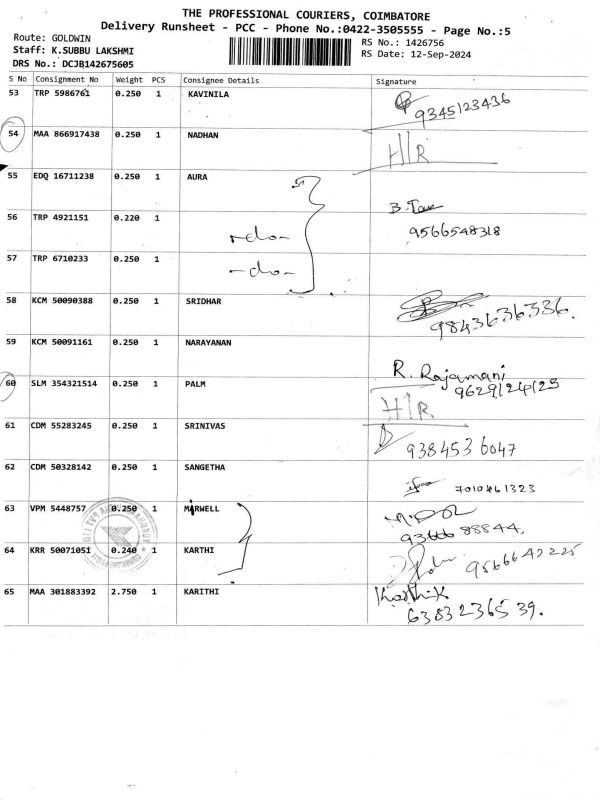 THE PROFESSIONAL COURIERS, COIMBATORE
Delivery Runsheet - PCC - Phone No.:0422-3505555 - Page No.:5
Route: GOLDWIN
RS No.: 1426756
Staff: K.SUBBU LAKSHMI
RS Date: 12-Sep-2024
DRS No.: DCJB142675605
S No Consignment No Weight PCS Consignee Details Signature
53 TRP 5986761 0.250 1 KAVINILA
9345123436
54 MAA 866917438 0.250 1 NADHAN
H/R
55 EDQ 16711238 0.250 1 AURA
56 TRP 4921151 0.220 1
-do-
9566548318
57 TRP 6710233 0.250 1
-do-
58 KCM 50090388 0.250 1 SRIDHAR
9843636336.
59 KCM 50091161 0.250 1 NARAYANAN
R. Rajamani
9629124123
60 SLM 354321514 0.250 1 PALM
H/R
61 CDM 55283245 0.250 1 SRINIVAS
9384536047
62 CDM 50328142 0.250 1 SANGETHA
7010461323
63 VPM 5448757 0.250 1 MARWELL
88844.
64 KRR 50071051 0.240 1 KARTHI
9566642225
65 MAA 301883392 2.750 1 KARITHI
Karthi.K
6383236539.